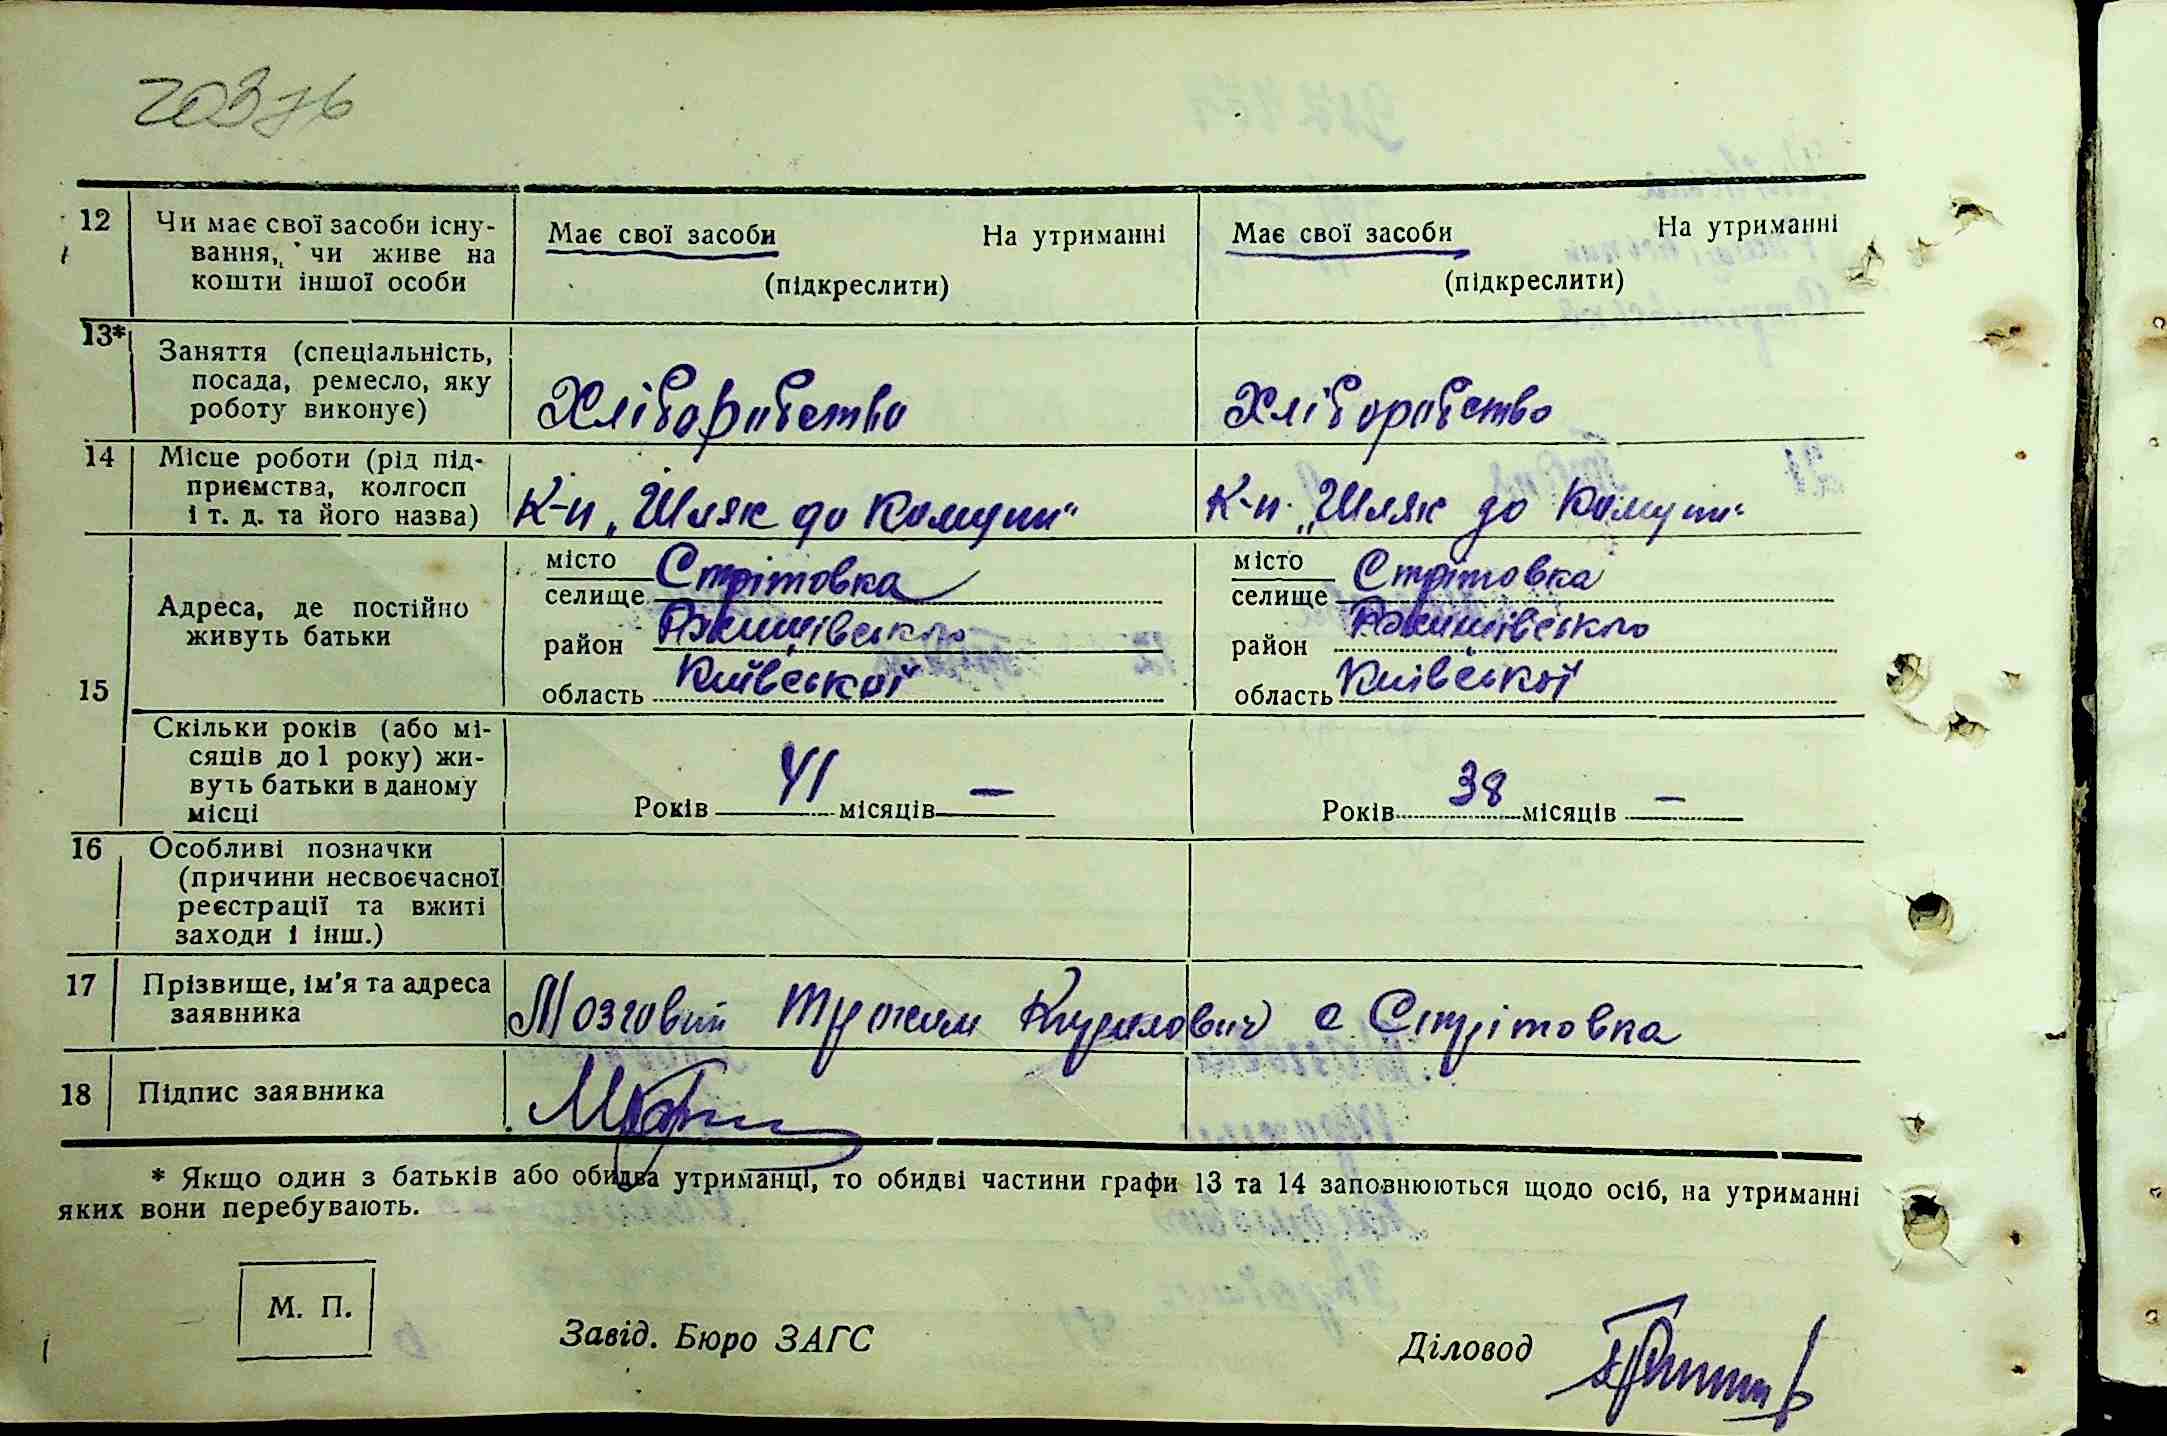 20376
12 Чи має свої засоби існу- Має свої засоби На утриманні Має свої засоби На утриманні
вання, чи живе на
кошти іншої особи (підкреслити) (підкреслити)
13* Заняття (спеціальність,
посада, ремесло, яку
роботу виконує) Хліборобство Хліборобство
14 Місце роботи (рід під-
приємства, колгосп
і т. д. та його назва) К-п „Шлях до Комуни" К-п „Шлях до Комуни"
15 Адреса, де постійно
живуть батьки
місто Стрітовка місто Стрітовка
селище селище
район Ржищівського район Ржищівського
область Київської область Київської
Скільки років (або мі-
сяців до 1 року) жи-
вуть батьки в даному
місці Років 41 місяців — Років 38 місяців —
16 Особливі позначки
(причини несвоєчасної
реєстрації та вжиті
заходи і інш.)
17 Прізвище, ім'я та адреса
заявника Мозговий Трохим Кирилович с Стрітовка
18 Підпис заявника
* Якщо один з батьків або обидва утриманці, то обидві частини графи 13 та 14 заповнюються щодо осіб, на утриманні
яких вони перебувають.
М. П.
Завід. Бюро ЗАГС Діловод